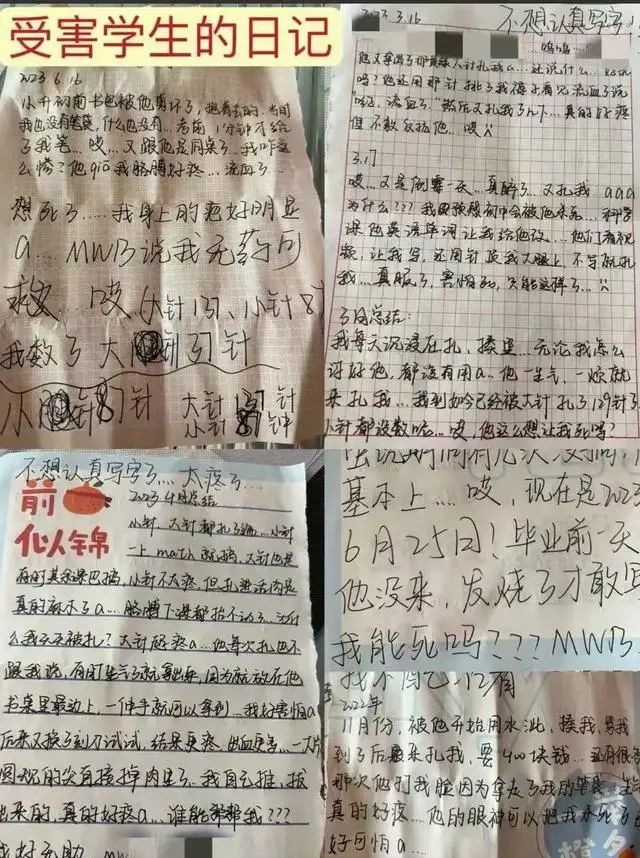 受害学生的日记
2023 6.16
小升初前书包被他弄坏了,抱着去的,当时
我也没有笔袋,什么也没有...考前1分钟才给
了我笔...哎...又跟他是同桌了...我咋这
么惨?他gió我胳膊好疼...流血了...
想死了....我身上的疤好明显
a... MWB说我无药可
救....哎(大针137、小针87
我数了大针137针
小针87针 大针137针
小针87针
2023.3.16 不想认真写字了
呜呜...
吗?他还用那针挑了我
3.17
哎...又是倒霉一天...真醉了...又扎我...aaa
为什么???我
课他英语单词让我给他改...他们看视
频,让我写,还用针顶我大腿上,不写就扎
我...真服了,害怕死,只能这样了...
3月总结:
我每天沉浸在扎,揍里...无论我怎么
讨好他,都没有用a...他一生气,一烦就
来扎我...我到如今已经被大针扎了129针了
小针都没数呢...哎,他这么想让我死吗?
不想认真写字了...太疼了...
前 似锦
2023 4月总结
小针,大针都扎了遍...小针
一上math就捅,大针也是
有时美术课也捅,小针不太疼,但扎进活肉是
真的麻木了a...胳膊下课都抬不动了...为什
么我天天被扎?大针超疼a...他每次扎也不
跟我说,有时生气了就拿出来,因为就放在他
书桌里最边上,一伸手就可以拿到...我好害怕a
后来又换了刻刀试试,结果更疼,出血更多...一大片
圆规的尖直接掉肉里了...我自己推,拔
出来的,真的好疼a...谁能帮帮我???
我好无助 MW
基本上....哎,现在是202
6月25日!毕业前一天
他没来,发烧了才敢写
我能死吗???MWB
2022年
11月份,被他开始用水泚,揍我,骂我
到了后最来扎我,要400块钱...还有很多
那次他打我脸因为拿走了我的笔袋,生气
真的好疼...他的眼神可以把我杀死
好可怕a...